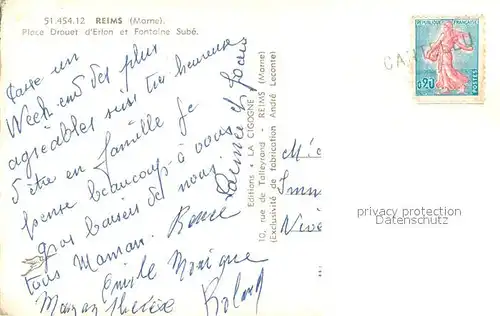 51.454.12 REIMS (Marne).
Place Drouet d'Erlon et Fontaine Subé.
un
Week-end des plus
agréables suis très heureuse
d'être en famille je
pense beaucoup à vous
gros baisers de nous
tous Maman.
Emile Monique
Maman Thérèse Roland
Editions "LA CIGOGNE"
10, rue de Talleyrand - REIMS (Marne)
(Exclusivité de fabrication André Leconte)
REPUBLIQUE FRANÇAISE
0,20
POSTES
privacy protection
Datenschutz